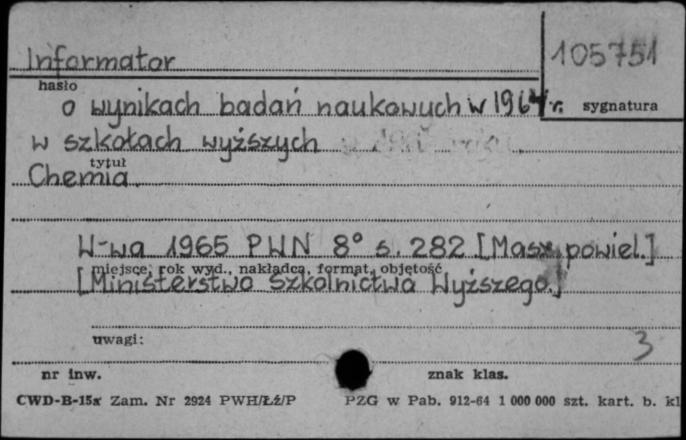 Informator
105751
hasło
o wynikach badań naukowych w 1964 r. sygnatura
w szkołach wyższych
tytuł
Chemia.
W-wa 1965 PWN 8° s. 282 [Masz. powiel.]
miejsce, rok wyd., nakładca, format, objętość
[Ministerstwo Szkolnictwa Wyższego.]
uwagi:
3
nr inw. znak klas.
CWD-B-15a Zam. Nr 2924 PWH/Łź/P PZG w Pab. 912-64 1 000 000 szt. kart. b. kl